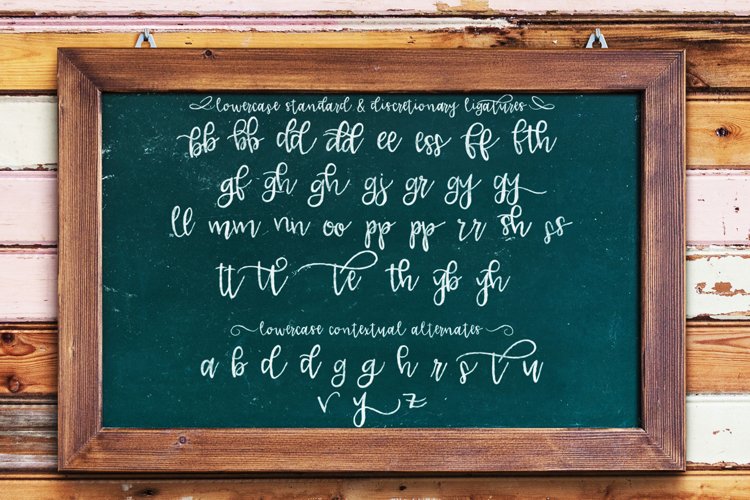 lowercase standard & discretionary ligatures
bb bb dd dd ee ess ff fth
gf gh gh gj gr gy gy
ll mm nn oo pp pp rr sh ss
tt tt te th yb yh
lowercase contextual alternates
a b d d g g h r s t u
v y z